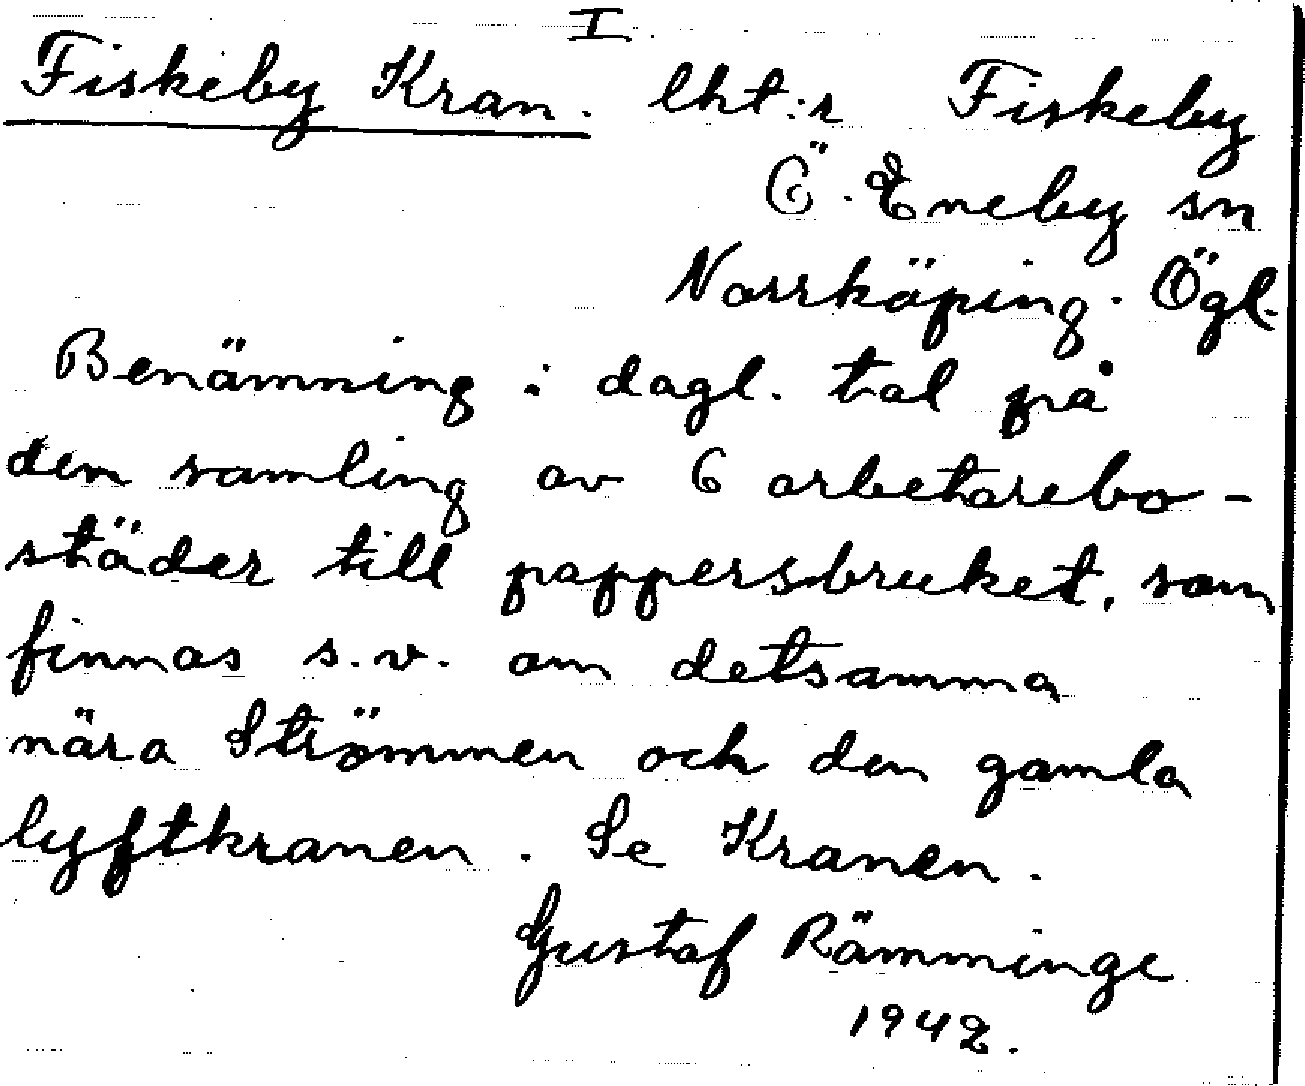 I.
Fiskeby Kran. lht:r Fiskeby
Ö. Eneby sn
Norrköping. Ögl.
Benämning i dagl. tal på
den samling av 6 arbetarebo-
städer till pappersbruket, som
finnas s.v. om detsamma
nära Strömmen och den gamla
lyftkranen. Se Kranen.
Gustaf Rämminge
1942.